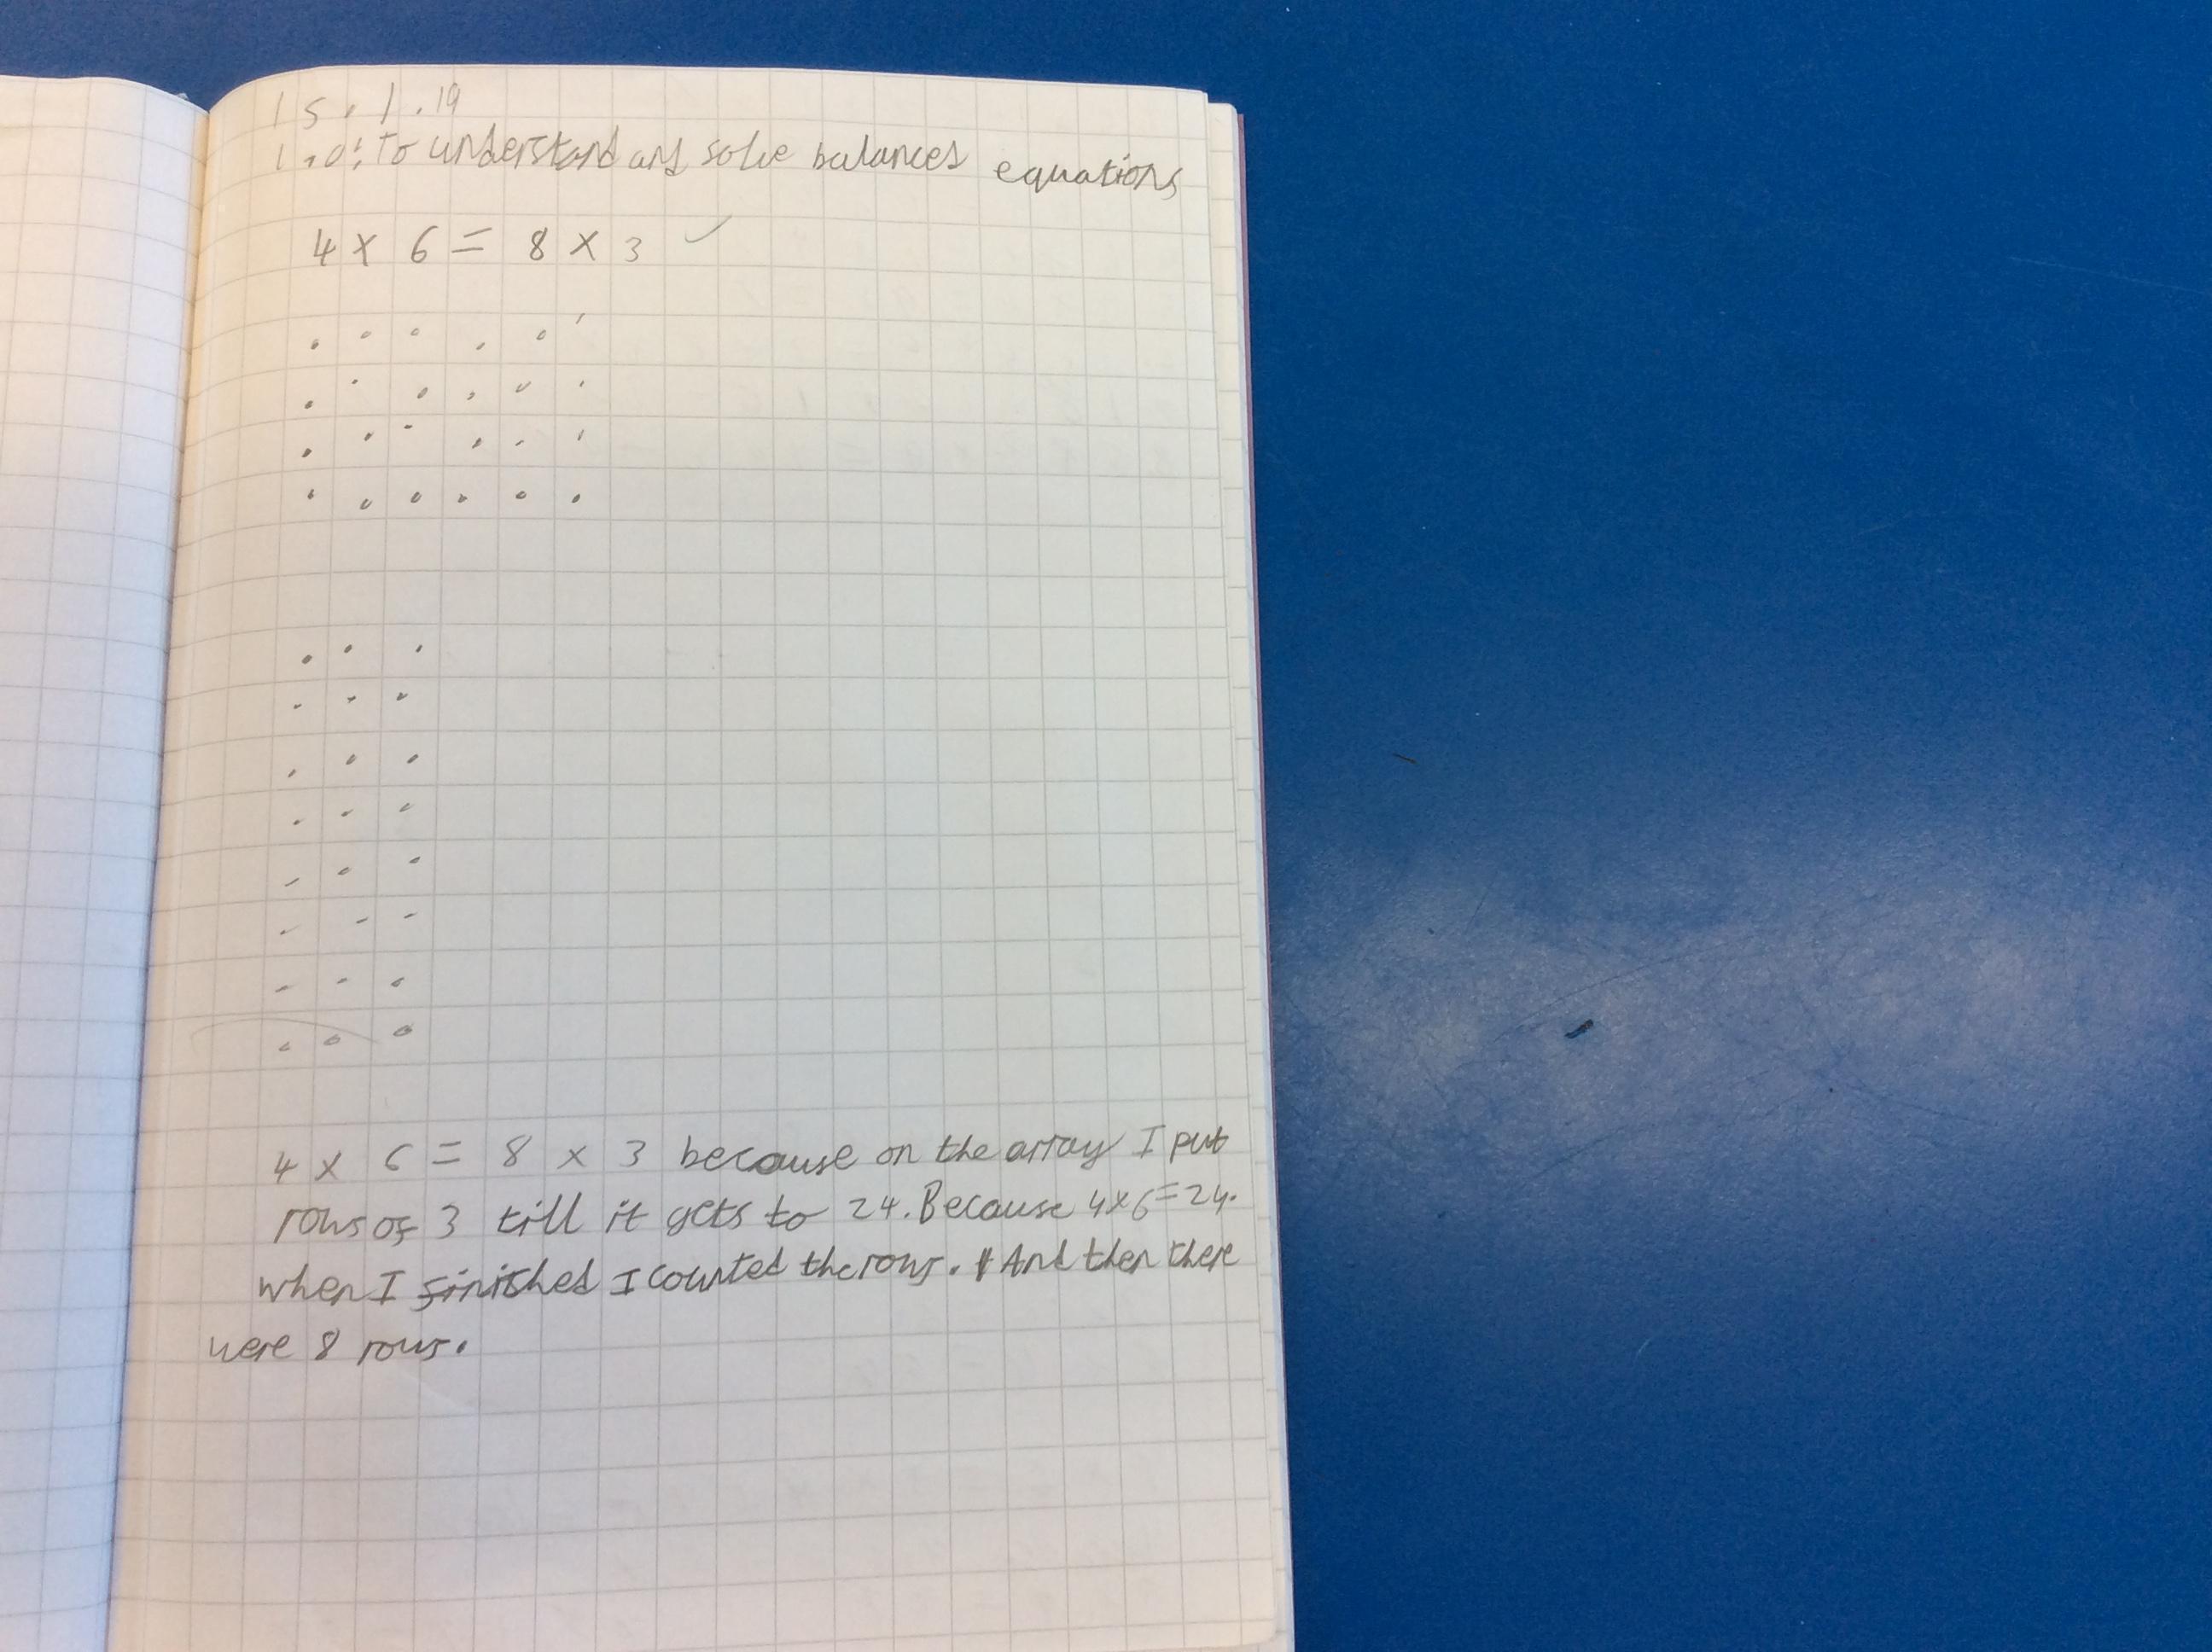 15.1.19
l.o: To understand and solve balances equations
4 x 6 = 8 x 3 ✓
4 x 6 = 8 x 3 because on the array I put
rows of 3 till it gets to 24. Because 4x6=24.
when I finished I counted the rows. And then there
were 8 rows.